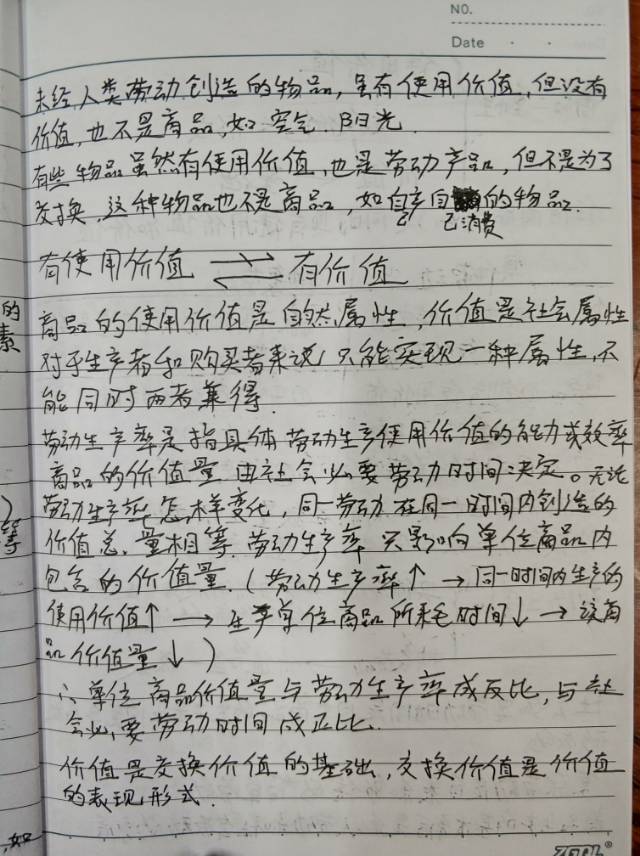 NO.
Date
未经人类劳动创造的物品,虽有使用价值,但没有
价值,也不是商品,如空气.阳光.
有些物品虽然有使用价值,也是劳动产品,但不是为了
交换,这种物品也不是商品,如自产自的物品.
己消费
有使用价值 ⇌ 有价值
商品的使用价值是自然属性,价值是社会属性
对于生产者和购买者来说,只能实现一种属性,不
能同时两者兼得.
劳动生产率是指具体劳动生产使用价值的能力或效率
商品的价值量由社会必要劳动力时间决定。无论
劳动生产率怎样变化,同一劳动在同一时间内创造的
价值总量相等.劳动生产率只影响单位商品内
包含的价值量.(劳动生产率↑ → 同一时间内生产的
使用价值↑ → 生产单位商品所耗时间↓ → 该商
品价值量↓)
∴单位商品价值量与劳动生产率成反比,与社
会必要劳动时间成正比.
价值是交换价值的基础,交换价值是价值
的表现形式.
的
素
等
,如